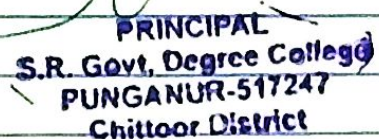 PRINCIPAL
S.R. Govt, Degree College
PUNGANUR-517247
Chittoor District